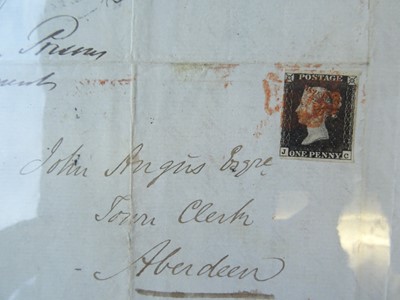 POSTAGE
J C
ONE PENNY
John Angus Esqre
Town Clerk
Aberdeen